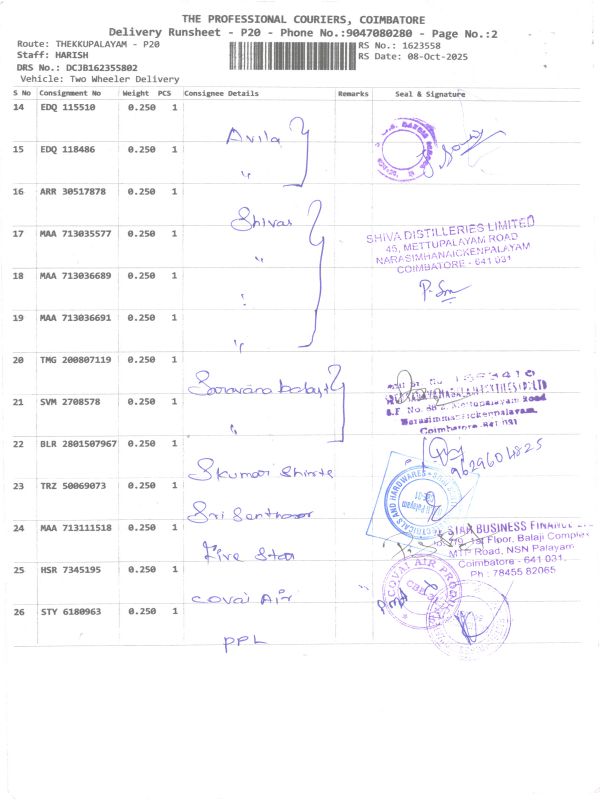 THE PROFESSIONAL COURIERS, COIMBATORE
Delivery Runsheet - P20 - Phone No.:9047080280 - Page No.:2
Route: THEKKUPALAYAM - P20
RS No.: 1623558
Staff: HARISH
RS Date: 08-Oct-2025
DRS No.: DCJB162355802
Vehicle: Two Wheeler Delivery
S No Consignment No Weight PCS Consignee Details Remarks Seal & Signature
14 EDQ 115510 0.250 1
Avila
15 EDQ 118486 0.250 1
"
16 ARR 30517878 0.250 1
Shivas
17 MAA 713035577 0.250 1
"
SHIVA DISTILLERIES LIMITED
45, METTUPALAYAM ROAD
NARASIMHANAICKENPALAYAM
COIMBATORE - 641 031
18 MAA 713036689 0.250 1
"
19 MAA 713036691 0.250 1
"
20 TMG 200807119 0.250 1
21 SVM 2708578 0.250 1
"
Mettupalayam Road
Narasimmanaickenpalayam,
Coimbatore-641 031
22 BLR 2801507967 0.250 1
9629604825
23 TRZ 50069073 0.250 1
ELECTRICALS AND HARDWARES
24 MAA 713111518 0.250 1
Five Star
STAR BUSINESS FINANCE
1st Floor, Balaji Complex
MTP Road, NSN Palayam
Coimbatore - 641 031.
Ph : 78455 82065
25 HSR 7345195 0.250 1
Covai Air
COVAI AIR PRODU
26 STY 6180963 0.250 1
PPL